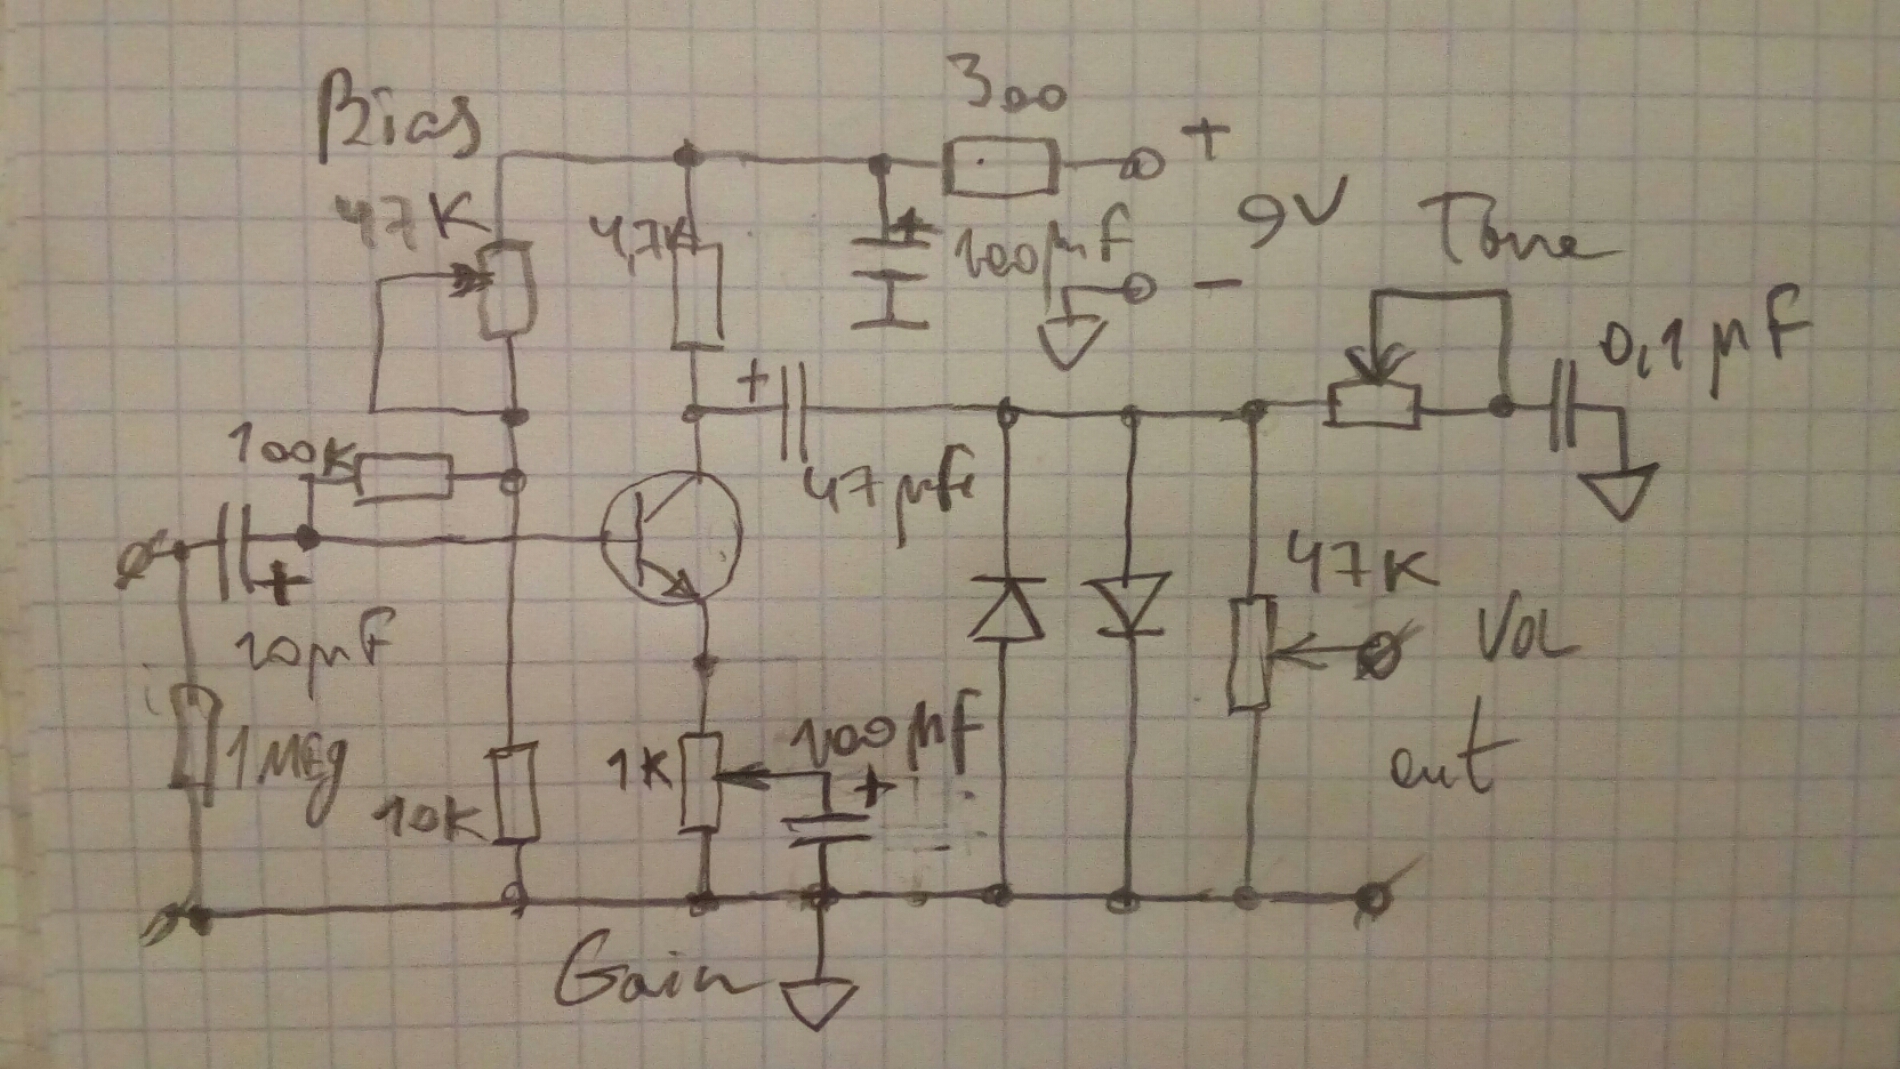 Bias
300
+
47K
4,7K
+
100µF
9V
-
Tone
0,1µF
+
47µF
100K
+
10µF
47K
Vol
out
1MEg
10K
1K
100µF
+
Gain